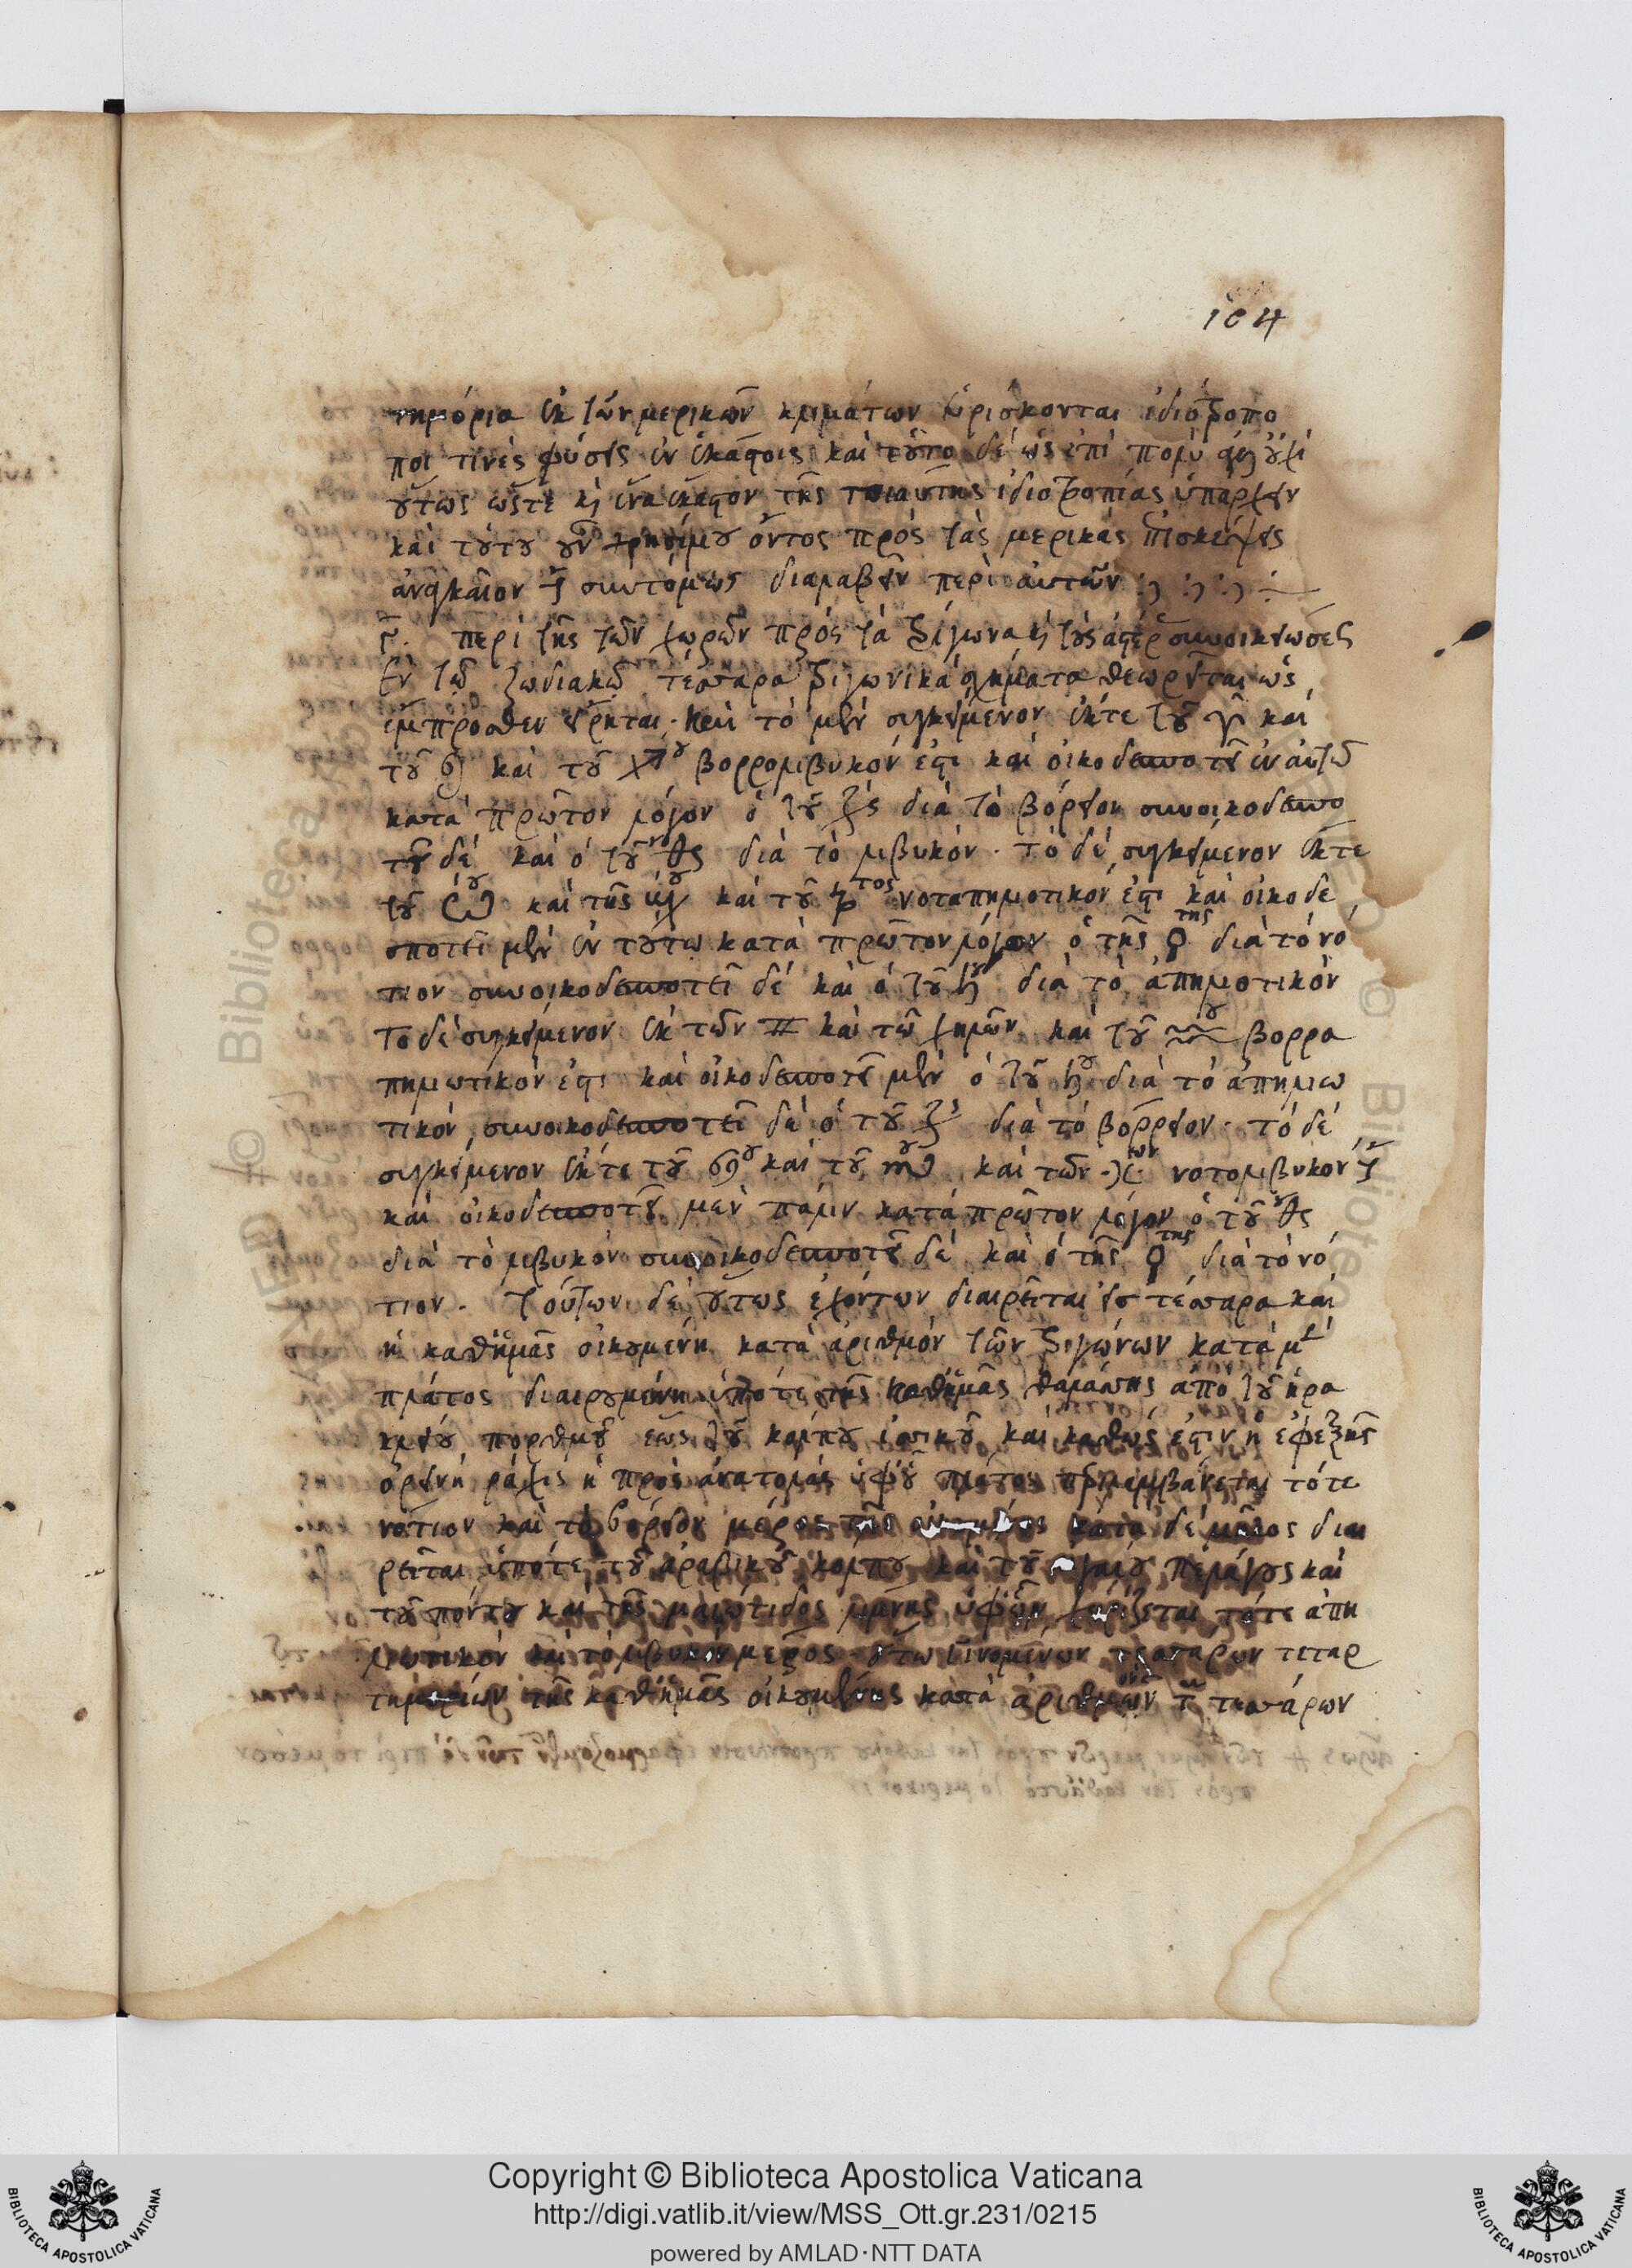 104
τημόρια ἐκ τῶν μερικῶν κλιμάτων εὑρίσκονται ἰδιότροπο
ποι τινὲς φύσεις ἐν ἑκάστοις καὶ τοῦτο δὲ ὡς ἐπὶ πολὺ οὐχὶ
οὕτως ὥστε καὶ ἕνα ἕκαστον τῆς τοιαύτης ἰδιοτροπίας ὑπάρχειν
καὶ τούτου οὖν χρησίμου ὄντος πρὸς τὰς μερικὰς ἐπισκέψεις
ἀναγκαῖον ἐστὶ συντόμως διαλαβεῖν περὶ αὐτῶν
γ. περὶ τῆς τῶν χωρῶν πρὸς τὰ τρίγωνα καὶ τοὺς ἀστέρας συνοικειώσεις
Ἐν τῷ ζωδιακῷ τέσσαρα τριγωνικὰ σχήματα θεωρεῖται ὡς
ἔμπροσθεν εἴρηται. καὶ τὸ μὲν συγκείμενον ἔκτε τοῦ ♈ καὶ
τοῦ ♌ καὶ τοῦ ♐ου βορρολιβυκόν ἐστι καὶ οἰκοδεσποτεῖ ἐν αὐτῷ
κατὰ πρῶτον λόγον ὁ τοῦ ♃ς διὰ τὸ βόρειον συνοικοδεσπο
τεῖ δὲ καὶ ὁ τοῦ ♂ς διὰ τὸ λιβυκόν. τὸ δὲ συγκείμενον ἔκτε
τοῦ ♉ου καὶ τῆς ♍ου καὶ τοῦ ♑τος νοταπηλιοτικόν ἐστι καὶ οἰκοδε
σποτεῖ μὲν ἐν τούτῳ κατὰ πρῶτον λόγον ὁ τῆς ♀της διὰ τὸ νό
τιον συνοικοδεσποτεῖ δὲ καὶ ὁ τοῦ ♄ου διὰ τὸ ἀπηλιοτικόν
Τὸ δὲ συγκείμενον ἐκ τῶν ♊ καὶ τῶν χηλῶν καὶ τοῦ ♒ου βορρα
πηλιωτικόν ἐστι καὶ οἰκοδεσποτεῖ μὲν ὁ τοῦ ♄ου διὰ τὸ ἀπηλιω
τικόν, συνοικοδεσποτεῖ δὲ ὁ τοῦ ♃ς διὰ τὸ βόρρειον. τὸ δὲ
συγκείμενον ἔκτε τοῦ ♋ου καὶ τοῦ ♏ου καὶ τῶν ♓ων νοτολιβυκόν ἐστι
καὶ οἰκοδεσποτεῖ μὲν πάλιν κατὰ πρῶτον λόγον ὁ τοῦ ♂ς
διὰ τὸ λιβυκόν συνοικοδεσποτεῖ δὲ καὶ ὁ τῆς ♀της διὰ τὸ νό
τιον. Τούτων δὲ οὕτως ἐχόντων διαιρεῖται εἰς τέσσαρα καὶ
ἡ καθ' ἡμᾶς οἰκουμένη κατὰ ἀριθμὸν τῶν τριγώνων κατὰ μὲν
πλάτος διαιρουμένη ὑπότε τῆς καθ' ἡμᾶς θαλάσσης ἀπὸ τοῦ ἡρα
κλείου πορθμοῦ ἕως τοῦ κόλπου ἰσικοῦ καὶ καθώς ἐστιν ἡ ἐφεξῆς
ὀρεινὴ ῥάχις ἡ πρὸς ἀνατολὰς ὑφ' οὗ πλάτος περιλαμβάνεται τότε
νότιον καὶ τὸ βόρειον μέρος τῆς κατὰ δὲ μῆκος διαι
ρεῖται ὑπότε τοῦ ἀραβικοῦ κόλπου καὶ τοῦ αἰγαίου πελάγους καὶ
τοῦ πόντου καὶ τῆς μαιώτιδος λίμνης ὑφ' ὧν χωρίζεται τότε ἀπη
λιωτικὸν καὶ τὸ λιβυκὸν μέρος. οὕτω γινομένων τεσσάρων τεταρ
τημορίων τῆς καθ' ἡμᾶς οἰκουμένης κατὰ ἀριθμὸν τῶν τεσσάρων
Copyright © Biblioteca Apostolica Vaticana
http://digi.vatlib.it/view/MSS_Ott.gr.231/0215
powered by AMLAD·NTT DATA
BIBLIOTECA APOSTOLICA VATICANA
BIBLIOTECA APOSTOLICA VATICANA